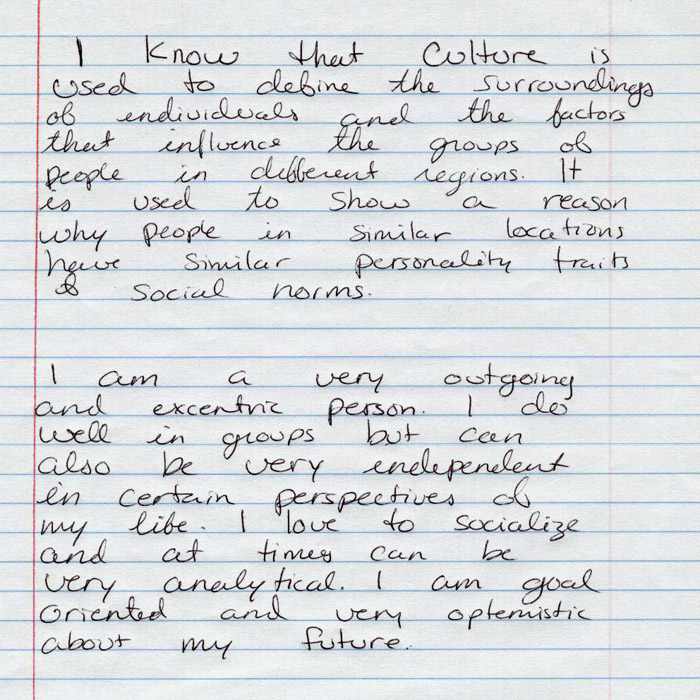 I know that culture is
used to define the surroundings
of individuals and the factors
that influence the groups of
people in different regions. It
is used to show a reason
why people in similar locations
have similar personality traits
& social norms.
I am a very outgoing
and excentric person. I do
well in groups but can
also be very independent
in certain perspectives of
my life. I love to socialize
and at times can be
very analytical. I am goal
oriented and very optemistic
about my future.